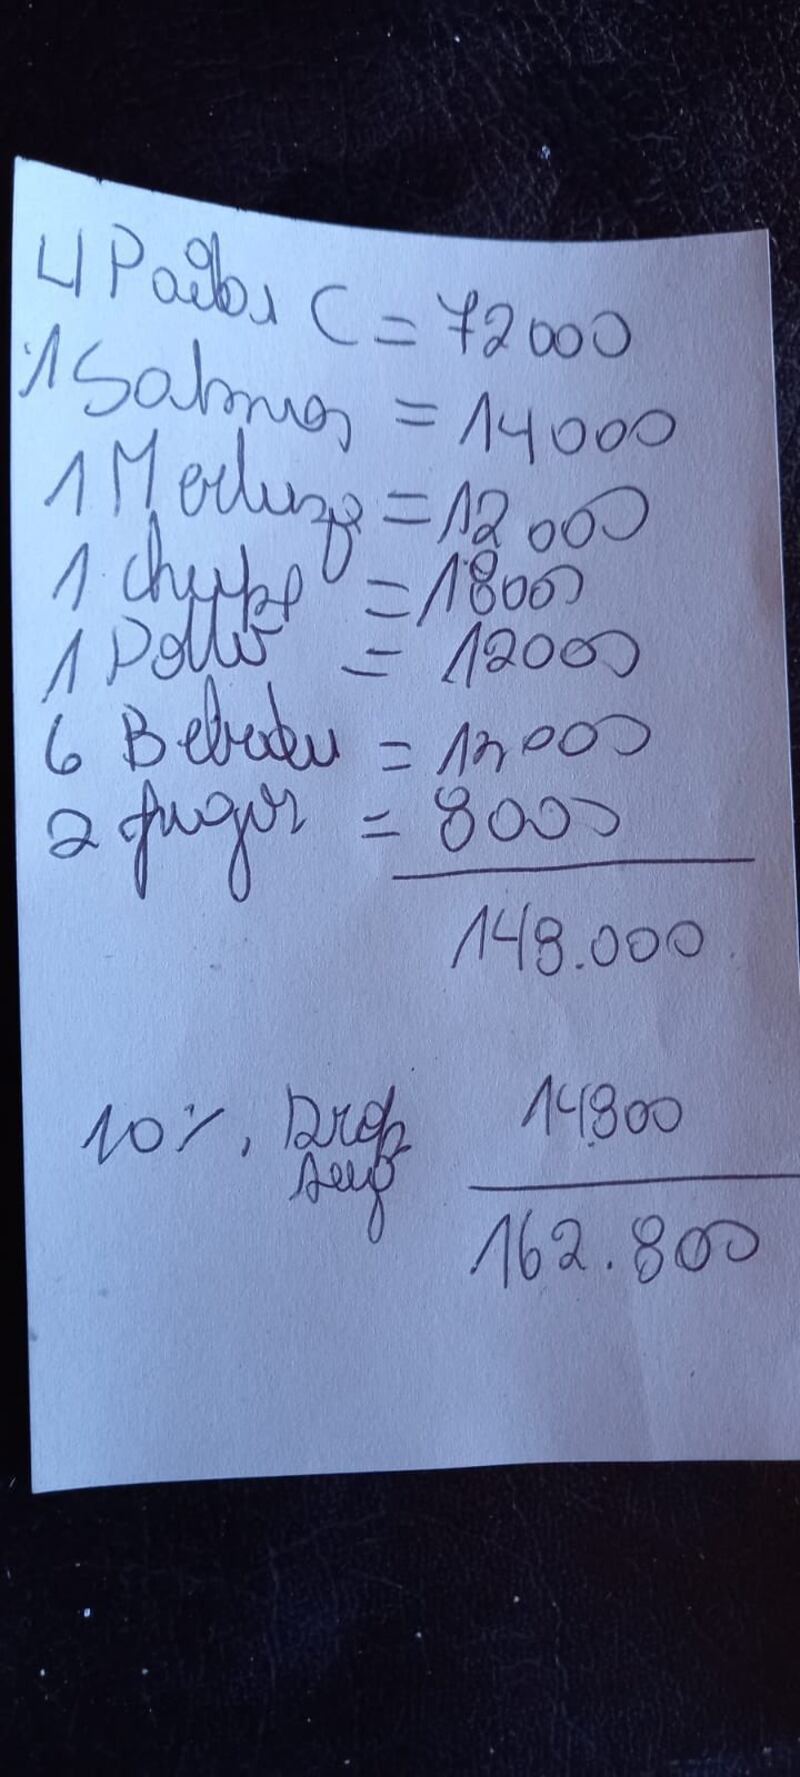 4 Pailas C = 72000
1 Salmon = 14000
1 Merluza = 12000
1 chupe = 18000
1 Pollo = 12000
6 Bebidas = 12000
2 Jugos = 8000
148.000
10%. Prop 14800
sug
162.800